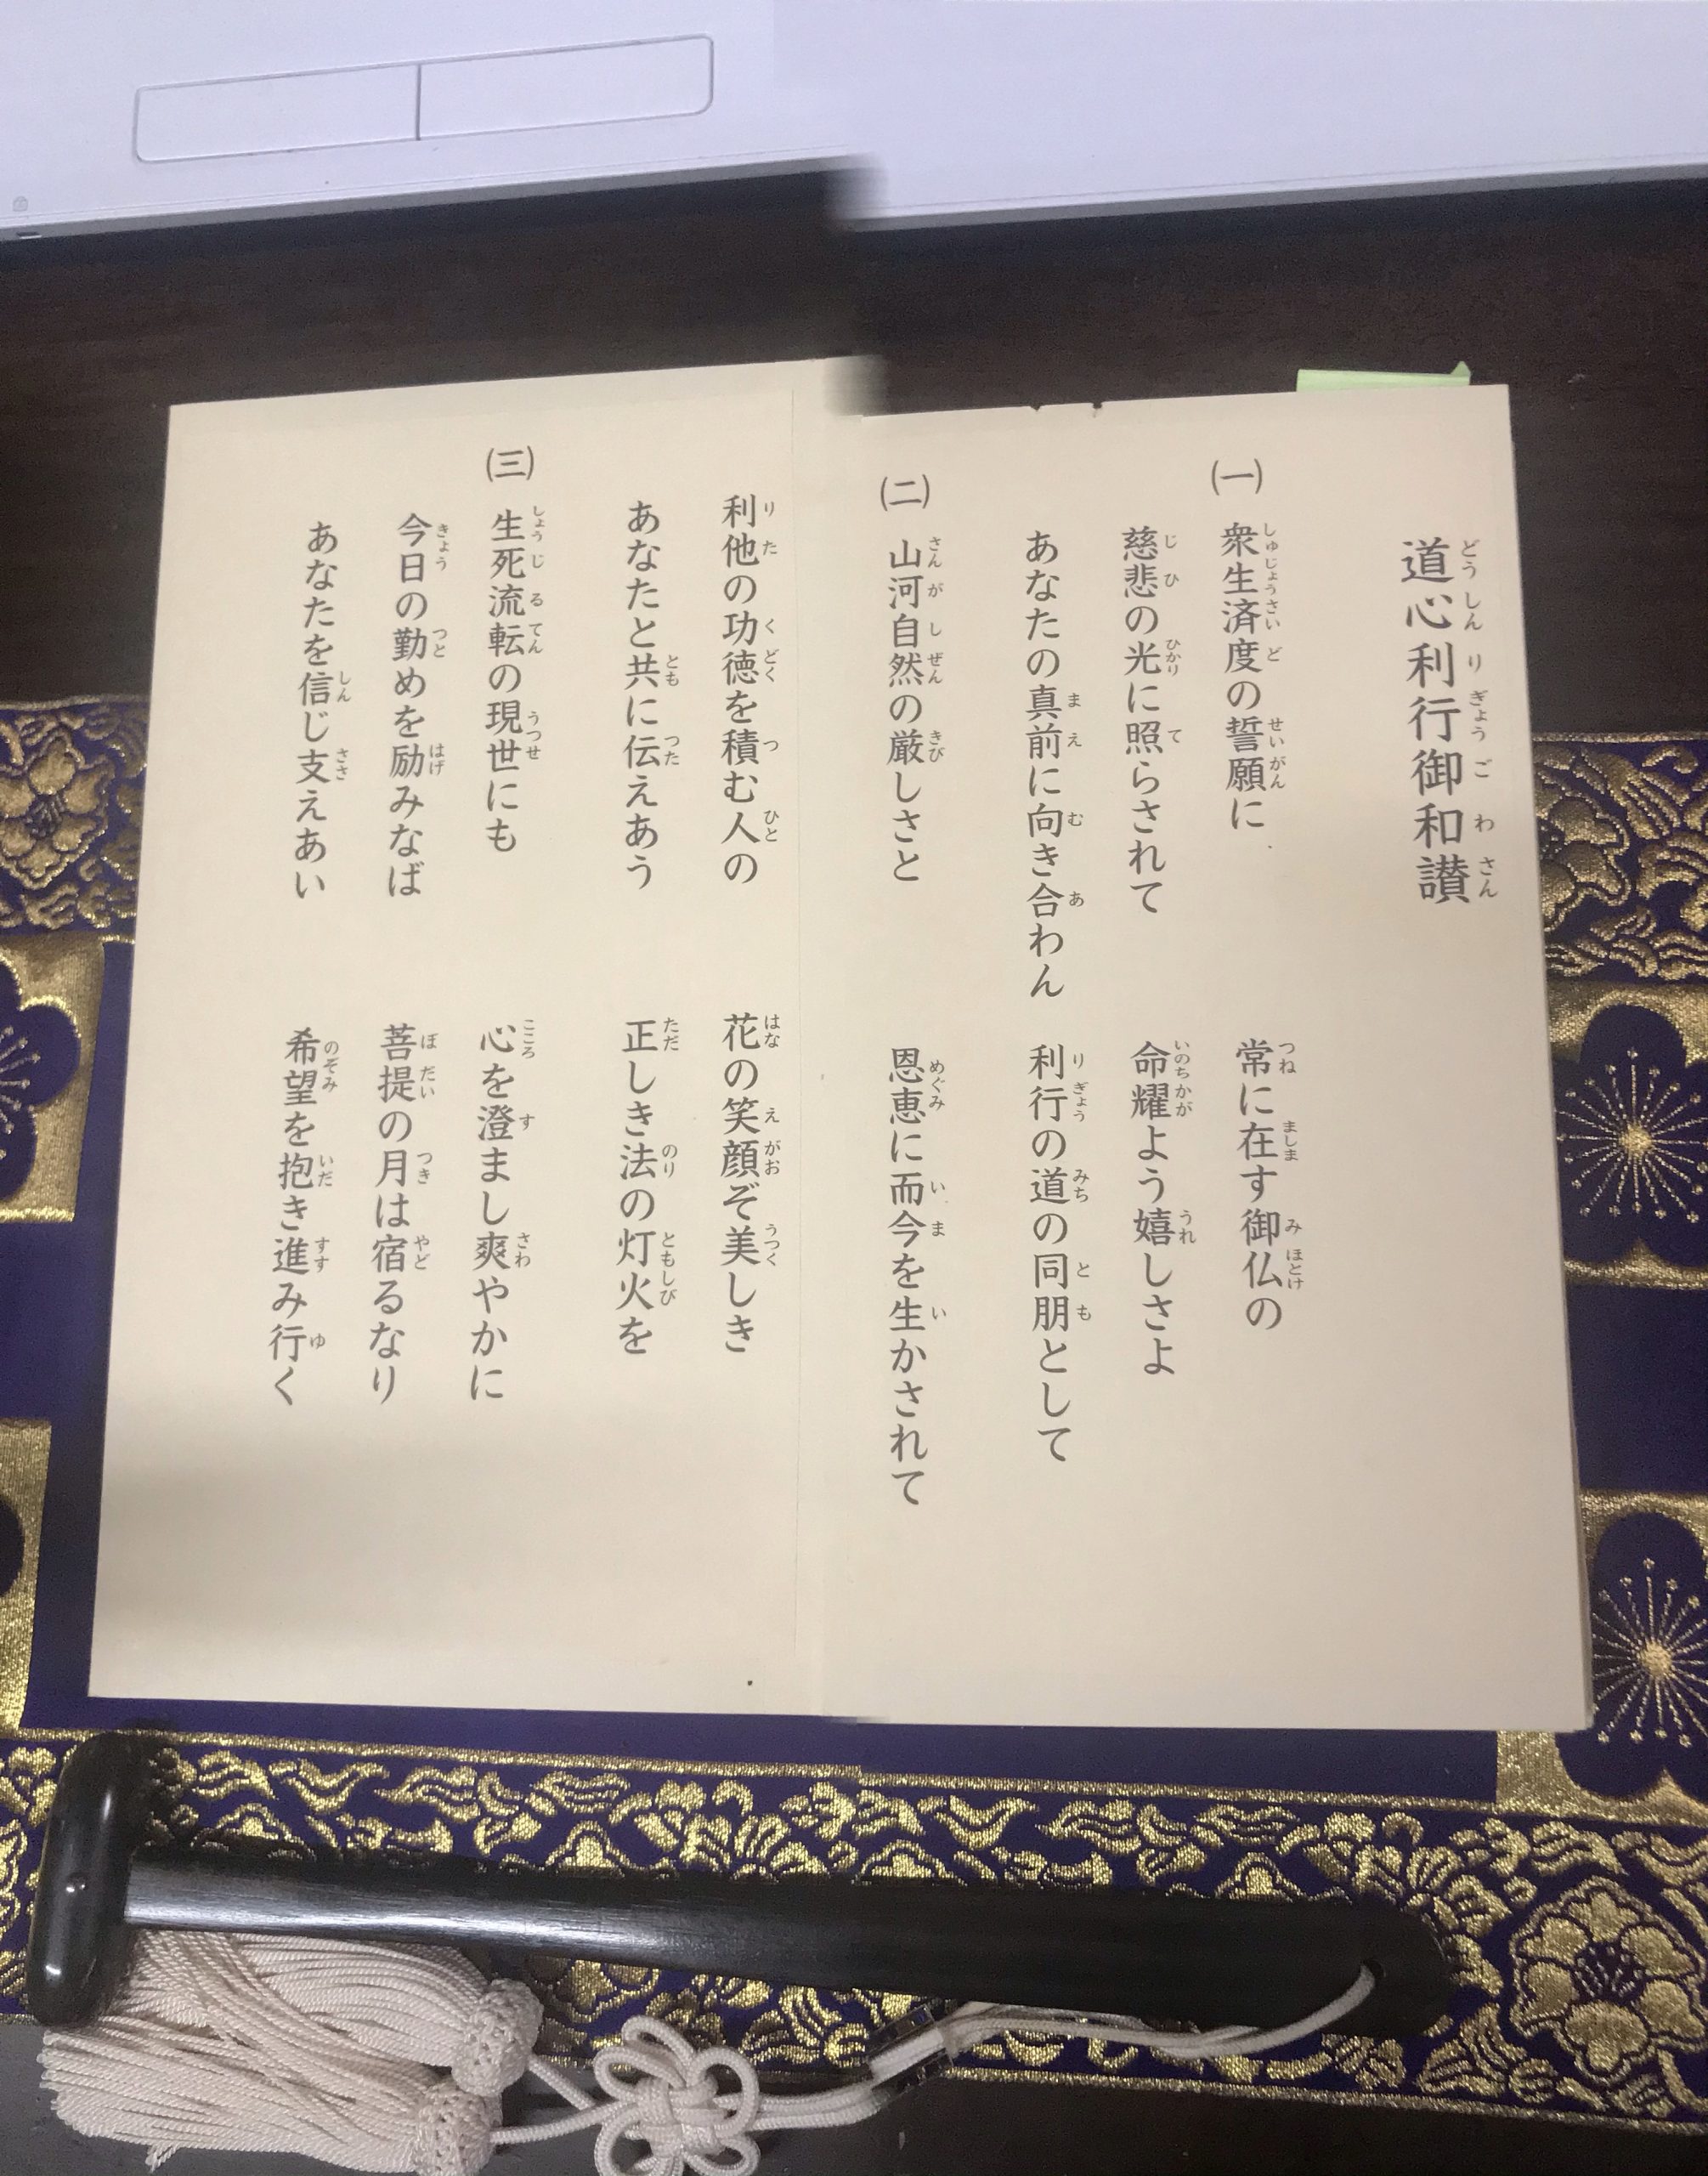 道心利行御和讃
(一) 衆生済度の誓願に 常に在す御仏の
慈悲の光に照らされて 命耀よう嬉しさよ
あなたの真前に向き合わん 利行の道の同朋として
(二) 山河自然の厳しさと 恩恵に而今を生かされて
利他の功徳を積む人の 花の笑顔ぞ美しき
あなたと共に伝えあう 正しき法の灯火を
(三) 生死流転の現世にも 心を澄まし爽やかに
今日の勤めを励みなば 菩提の月は宿るなり
あなたを信じ支えあい 希望を抱き進み行く